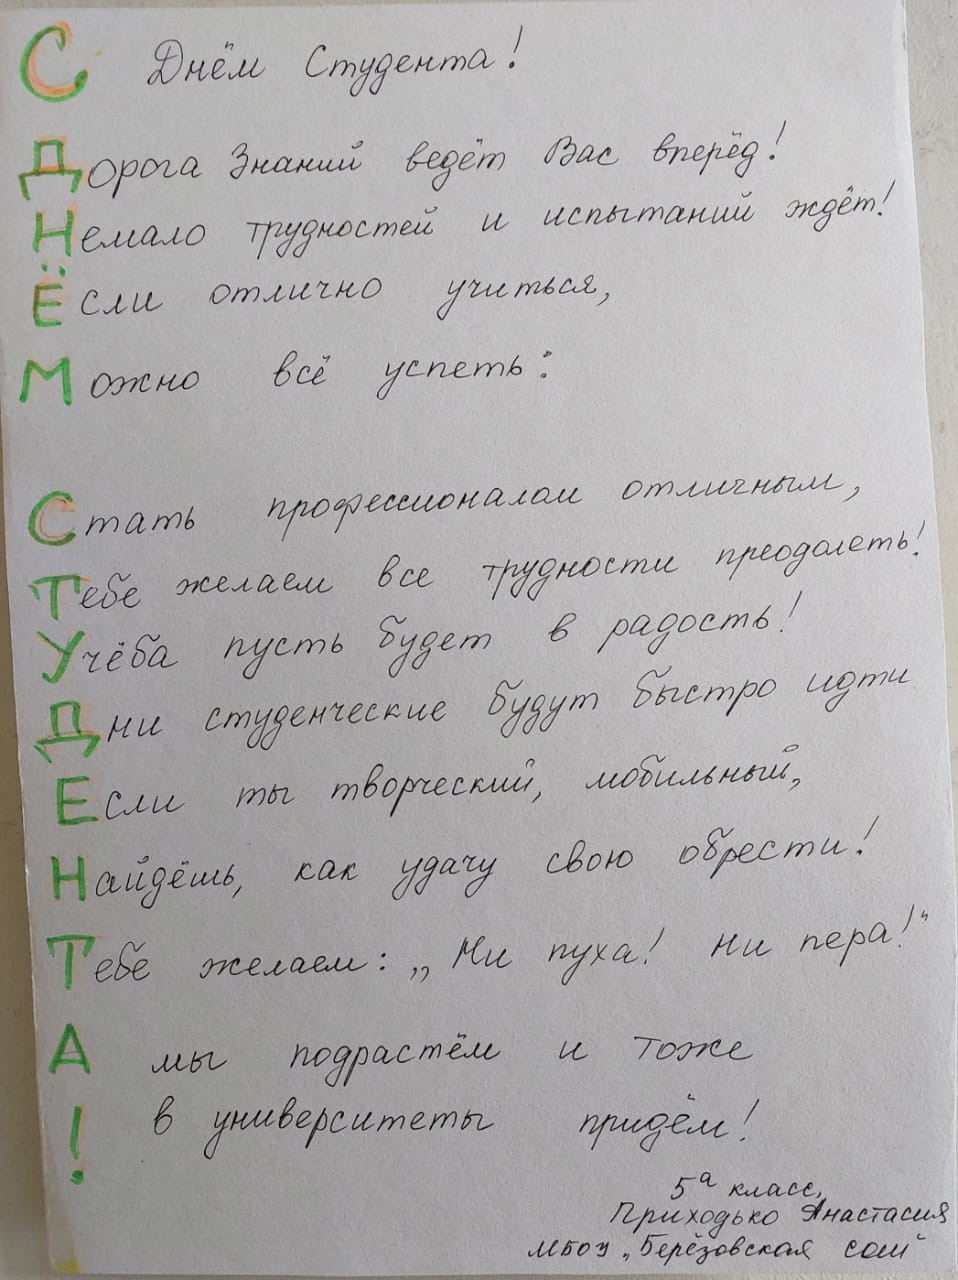 С Днём Студента!
Дорога Знаний ведёт Вас вперёд!
Немало трудностей и испытаний ждёт!
Если отлично учиться,
Можно всё успеть:
Стать профессионалом отличным,
Тебе желаем все трудности преодолеть!
Учёба пусть будет в радость!
Дни студенческие будут быстро идти
Если ты творческий, мобильный,
Найдёшь, как удачу свою обрести!
Тебе желаем: „Ни пуха! Ни пера!“
А мы подрастём и тоже
! в университеты придём!
5а класс,
Приходько Анастасия
МБОУ „Берёзовская сош“